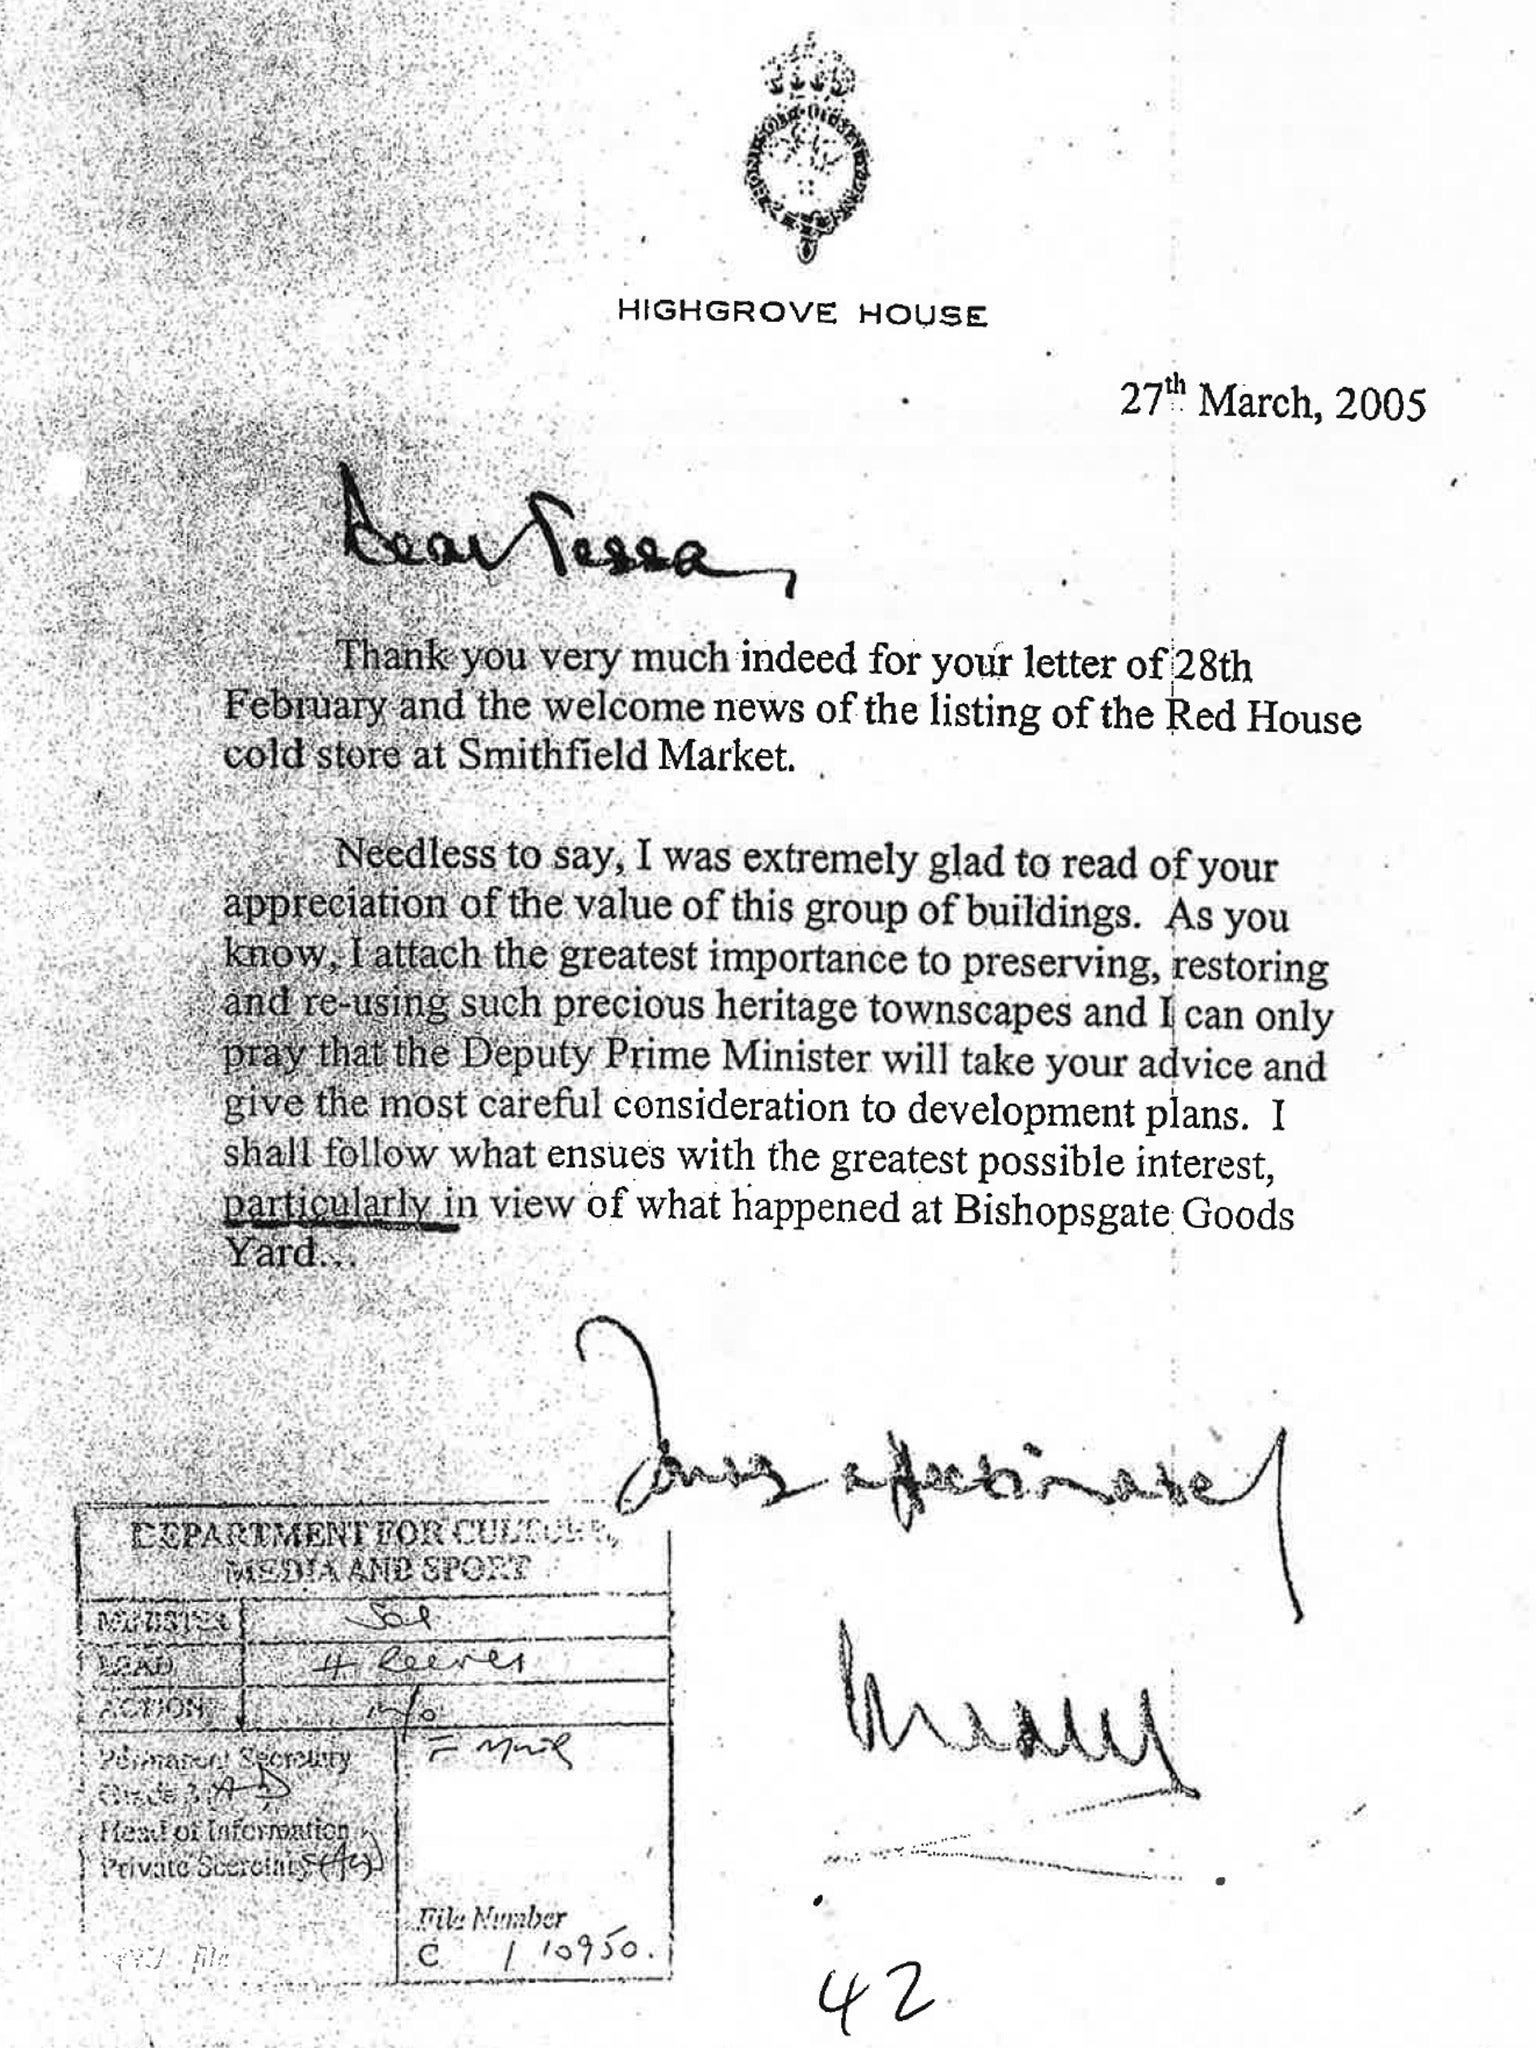 HONI SOIT QUI MAL Y PENSE
HIGHGROVE HOUSE
27th March, 2005
Dear Tessa,
Thank you very much indeed for your letter of 28th
February and the welcome news of the listing of the Red House
cold store at Smithfield Market.
Needless to say, I was extremely glad to read of your
appreciation of the value of this group of buildings. As you
know, I attach the greatest importance to preserving, restoring
and re-using such precious heritage townscapes and I can only
pray that the Deputy Prime Minister will take your advice and
give the most careful consideration to development plans. I
shall follow what ensues with the greatest possible interest,
particularly in view of what happened at Bishopsgate Goods
Yard...
Yours affectionately
DEPARTMENT FOR CULTURE,
MEDIA AND SPORT
MINISTER SoS
LEAD H Reeves
ACTION
Permanent Secretary
Head of Information
Private Secretary
File Number
C 110950.
file
42